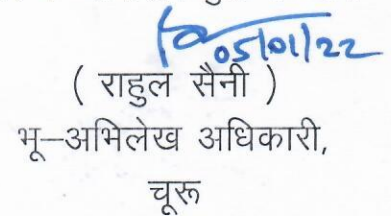 05/01/22
( राहुल सैनी )
भू–अभिलेख अधिकारी,
चूरू